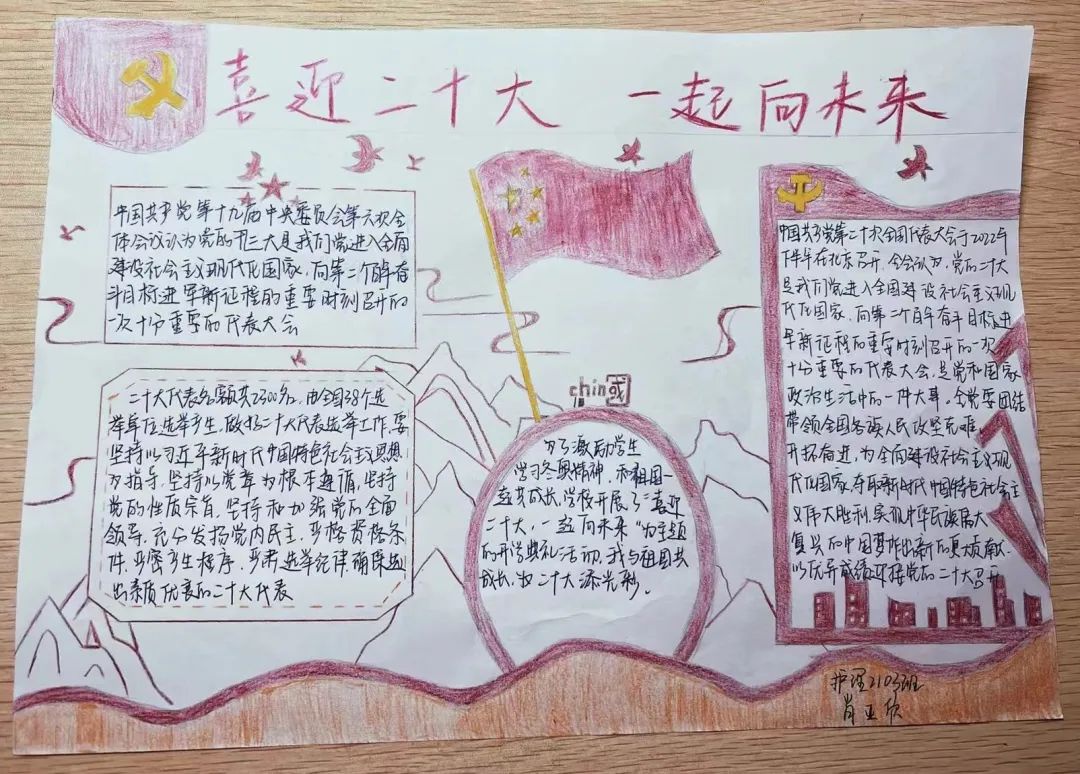 喜迎二十大 一起向未来
中国共产党第十九届中央委员会第六次全
体会议认为党的二十大是我们党进入全面
建设社会主义现代化国家、向第二个百年奋
斗目标进军新征程的重要时刻召开的
一次十分重要的代表大会
二十大代表名额共2300名，由全国38个选
举单位选举产生，做好二十大代表选举工作，要
坚持以习近平新时代中国特色社会主义思想
为指导，坚持以党章为根本遵循，坚持
党的性质宗旨，坚持和加强党的全面
领导，充分发扬党内民主，严格资格条
件，严密产生程序，严肃选举纪律确保选
出高素质代表的二十大代表
chin国
为了激励学生
学习冬奥精神，和祖国一
起共成长，学校开展了“喜迎
二十大，一起向未来”为主题
的开学典礼活动，我与祖国共
成长，为二十大添光彩。
中国共产党第二十次全国代表大会于2022年
下半年在北京召开，全会认为，党的二十大
是我们党进入全国建设社会主义现
代化国家，向第二个百年奋斗目标进
军新征程的重要时刻召开的一次
十分重要的代表大会，是党和国家
政治生活中的一件大事。全党要团结
带领全国各族人民攻坚克难，
开拓奋进，为全面建设社会主义现
代化国家，夺取新时代中国特色社会主
义伟大胜利，实现中华民族伟大
复兴的中国梦作出新的更大贡献，
以优异成绩迎接党的二十大召开
护理2103班
肖亚欣